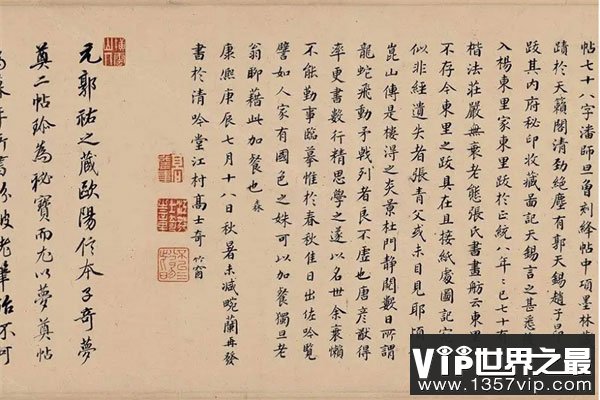 帖七十八字潘師旦曾刻絳帖中項墨林
蹟於天籟閣清勁絕塵有郭天錫趙子昂
跋其内府秘印收藏圖記天錫言之甚悉
入楊東里家東里跋於正統八年已七十
楷法莊嚴無衰老態張氏書畫舫云東里
不存今東里之跋具在且接紙處圖記
似非經遺失者張青父或未目見耶頃
崑山傳是樓得之炎景杜門靜閱數日所謂
龍蛇飛動矛戟列者良不虛也唐彥猷得
率更書數行精思學之遂以名世余衰懶
不能勤事臨摹惟於春秋佳日出佐吟覽
譬如人家有國色之姝可以加餐獨旦老
翁聊藉此加餐也 森
康熙庚辰七月十八日秋暑未減畹蘭再發
書於清吟堂江村高士奇 竹窗
元郭祐之藏歐陽信本子奇夢
奠二帖珍為秘寶而尤以夢奠帖
所書紛披老筆殆不可
VIP世界之最
www.1357vip.com